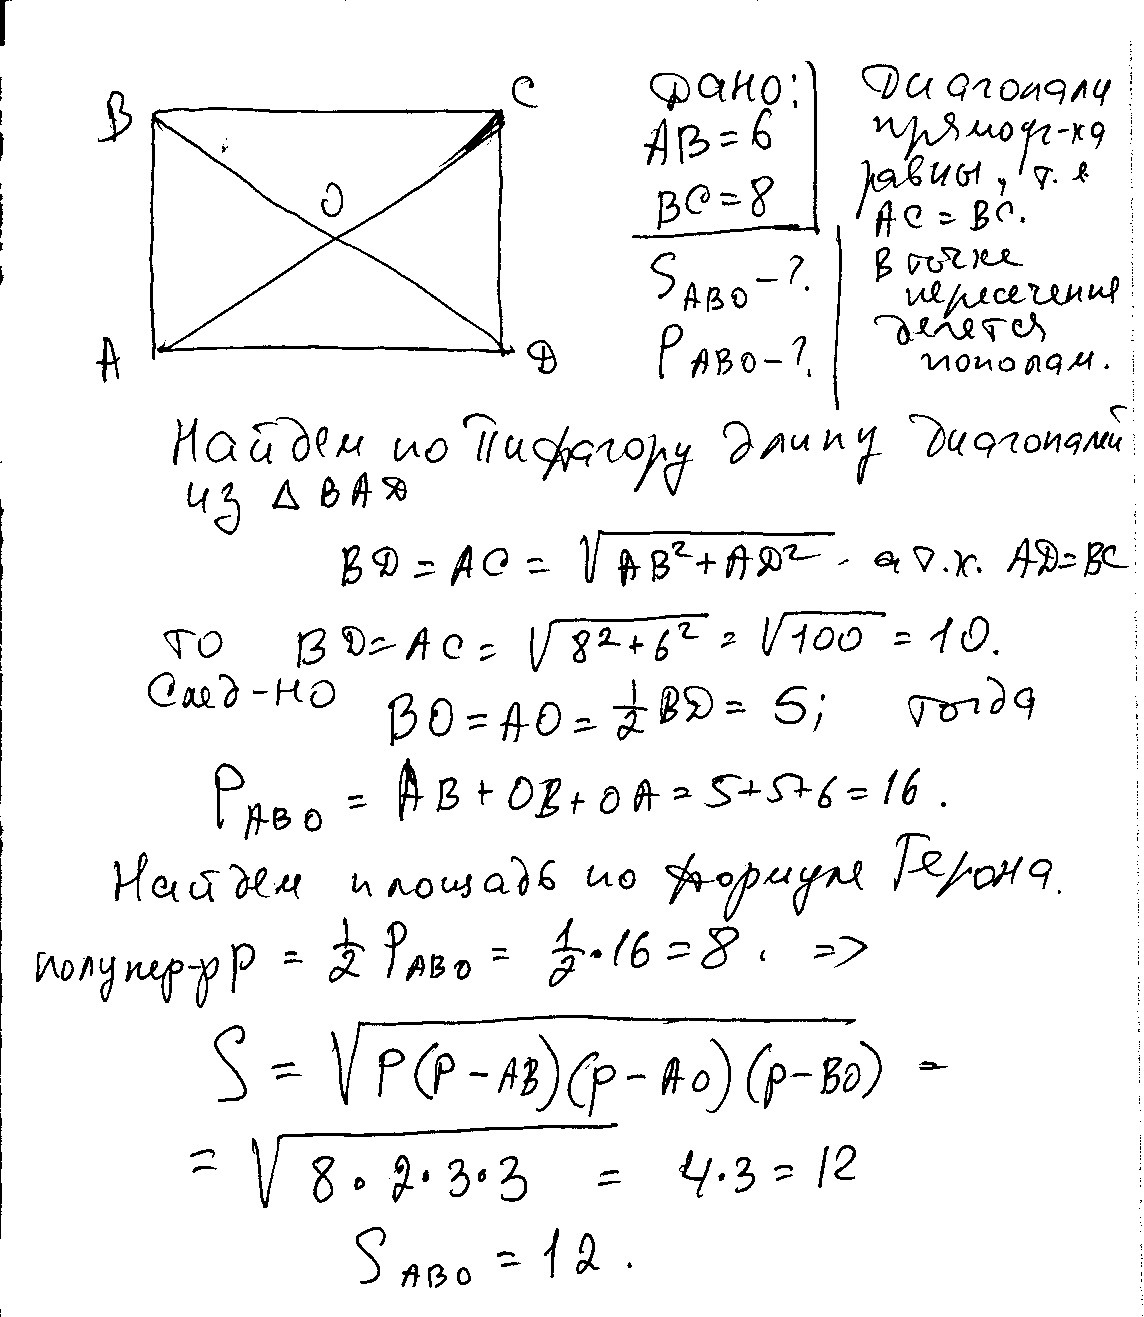 B
C
O
A
D
Дано:
AB = 6
BC = 8
S ABO - ?.
P ABO - ?.
Диагонали
прямоуг-ка
равны, т.е
AC = BC.
В точке
пересечения
делется
пополам.
Найдем по Пифагору длину диагоналий
из Δ BAD
BD = AC = √AB² + AD² - а т.к. AD = BC
то BD = AC = √8² + 6² = √100 = 10.
След-но
BO = AO = 1/2 BD = 5; тогда
P ABO = AB + OB + OA = 5 + 5 + 6 = 16.
Найдем площадь по формуле Герона.
полупер-р P = 1/2 P ABO = 1/2 · 16 = 8. =>
S = √P(P - AB)(p - AO)(p - BO) =
= √8 · 2 · 3 · 3 = 4 · 3 = 12
S ABO = 12.